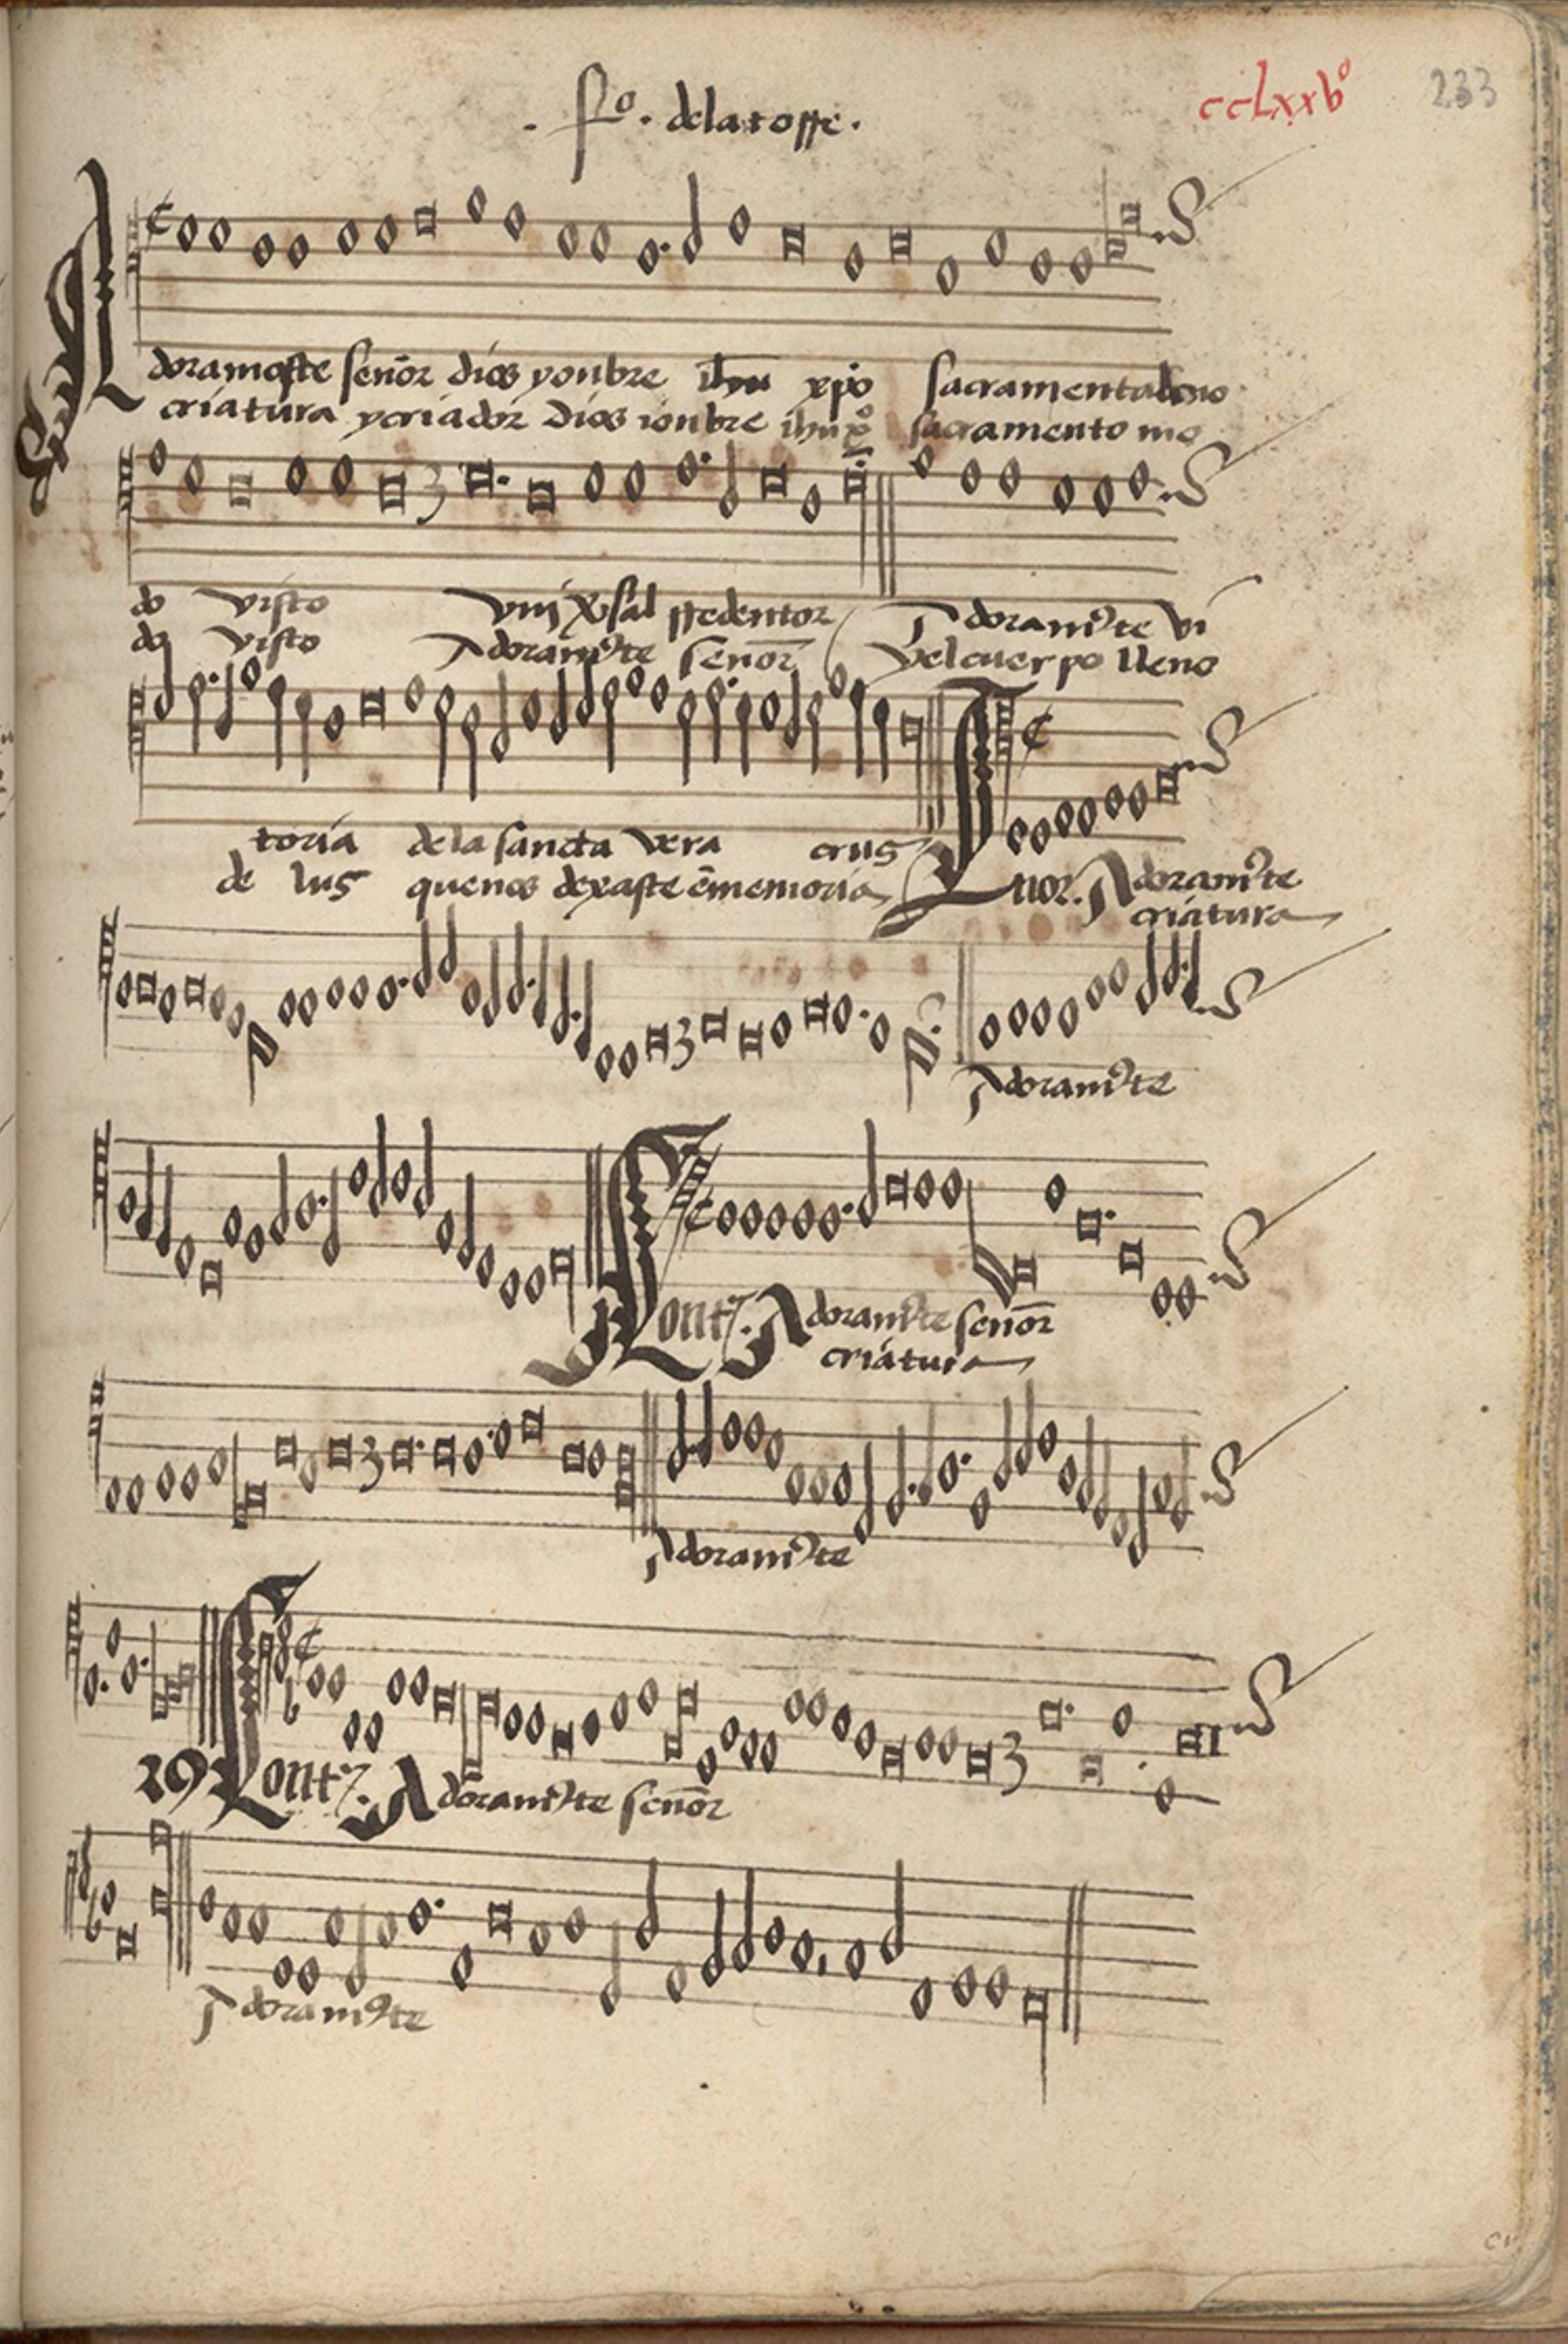 . fo. delatorre.
cclxxbº 233
Adoramoste señor dios yonbre ihu xpo sacramento
criatura ycriador dios ionbre ihu xº sacramento mo
do visto vniversal rredentor Adoram9te vi
do visto Adoram9te señor yelcuerpo lleno
toria dela sancta vera crus
de lus quenos dexaste ēmemoria
Tenor. Adoram9te
criatura
Adoram9te
Cont7. Adoram9te señor
criatura
Adoram9te
29 Cont7. Adoram9te señor
Adoram9te